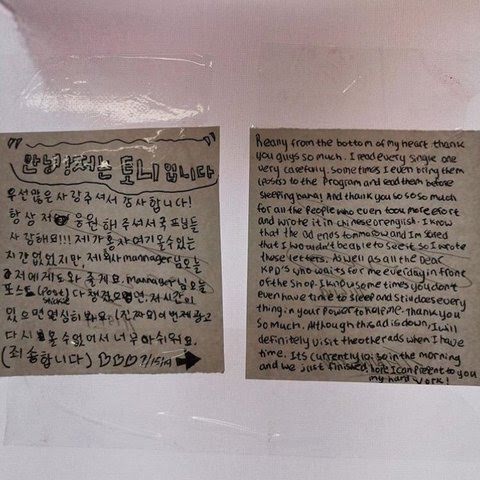 안녕 저는 토니입니다
우선 많은 사랑 주셔서 감사합니다!
항상 저 응원 해 주셔서 국프님들
사랑해요!!! 제가 혼자 여기 올 수 있는
시간 없었지만, 제 회사 mannager님 오늘
저 데게도와 줄게요. mannager님 오늘
포스트 (post) 다
있으면 열심히 봐요. (진짜요) 이번 제 광고
다시 볼 수 없어서 너무 아쉬워요.
(죄송합니다) ♡♡♡ 7/15/19
Really from the bottom of my heart thank
you guys so much. I read every single one
very carefully. Sometimes I even bring them
(posts) to the Program and read them before
sleeping haha). And thank you so so so much
for all the people who even took more effort
and wrote it in chinese or english. I know
that the ad ends tommorow and Im scared
that I wouldn't be able to see it so I wrote
these letters. As well as all the Dear
KPD's who waits for me everyday in front
of the shop. I know some times you don't
even have time to sleep and still does every
thing in your power to help me. Thank you
so much. Although this ad is down, I will
definitely visit the other ads when I have
time. Its currently 10:30 in the morning
and we just finished, hope I can present to you
my hard work!